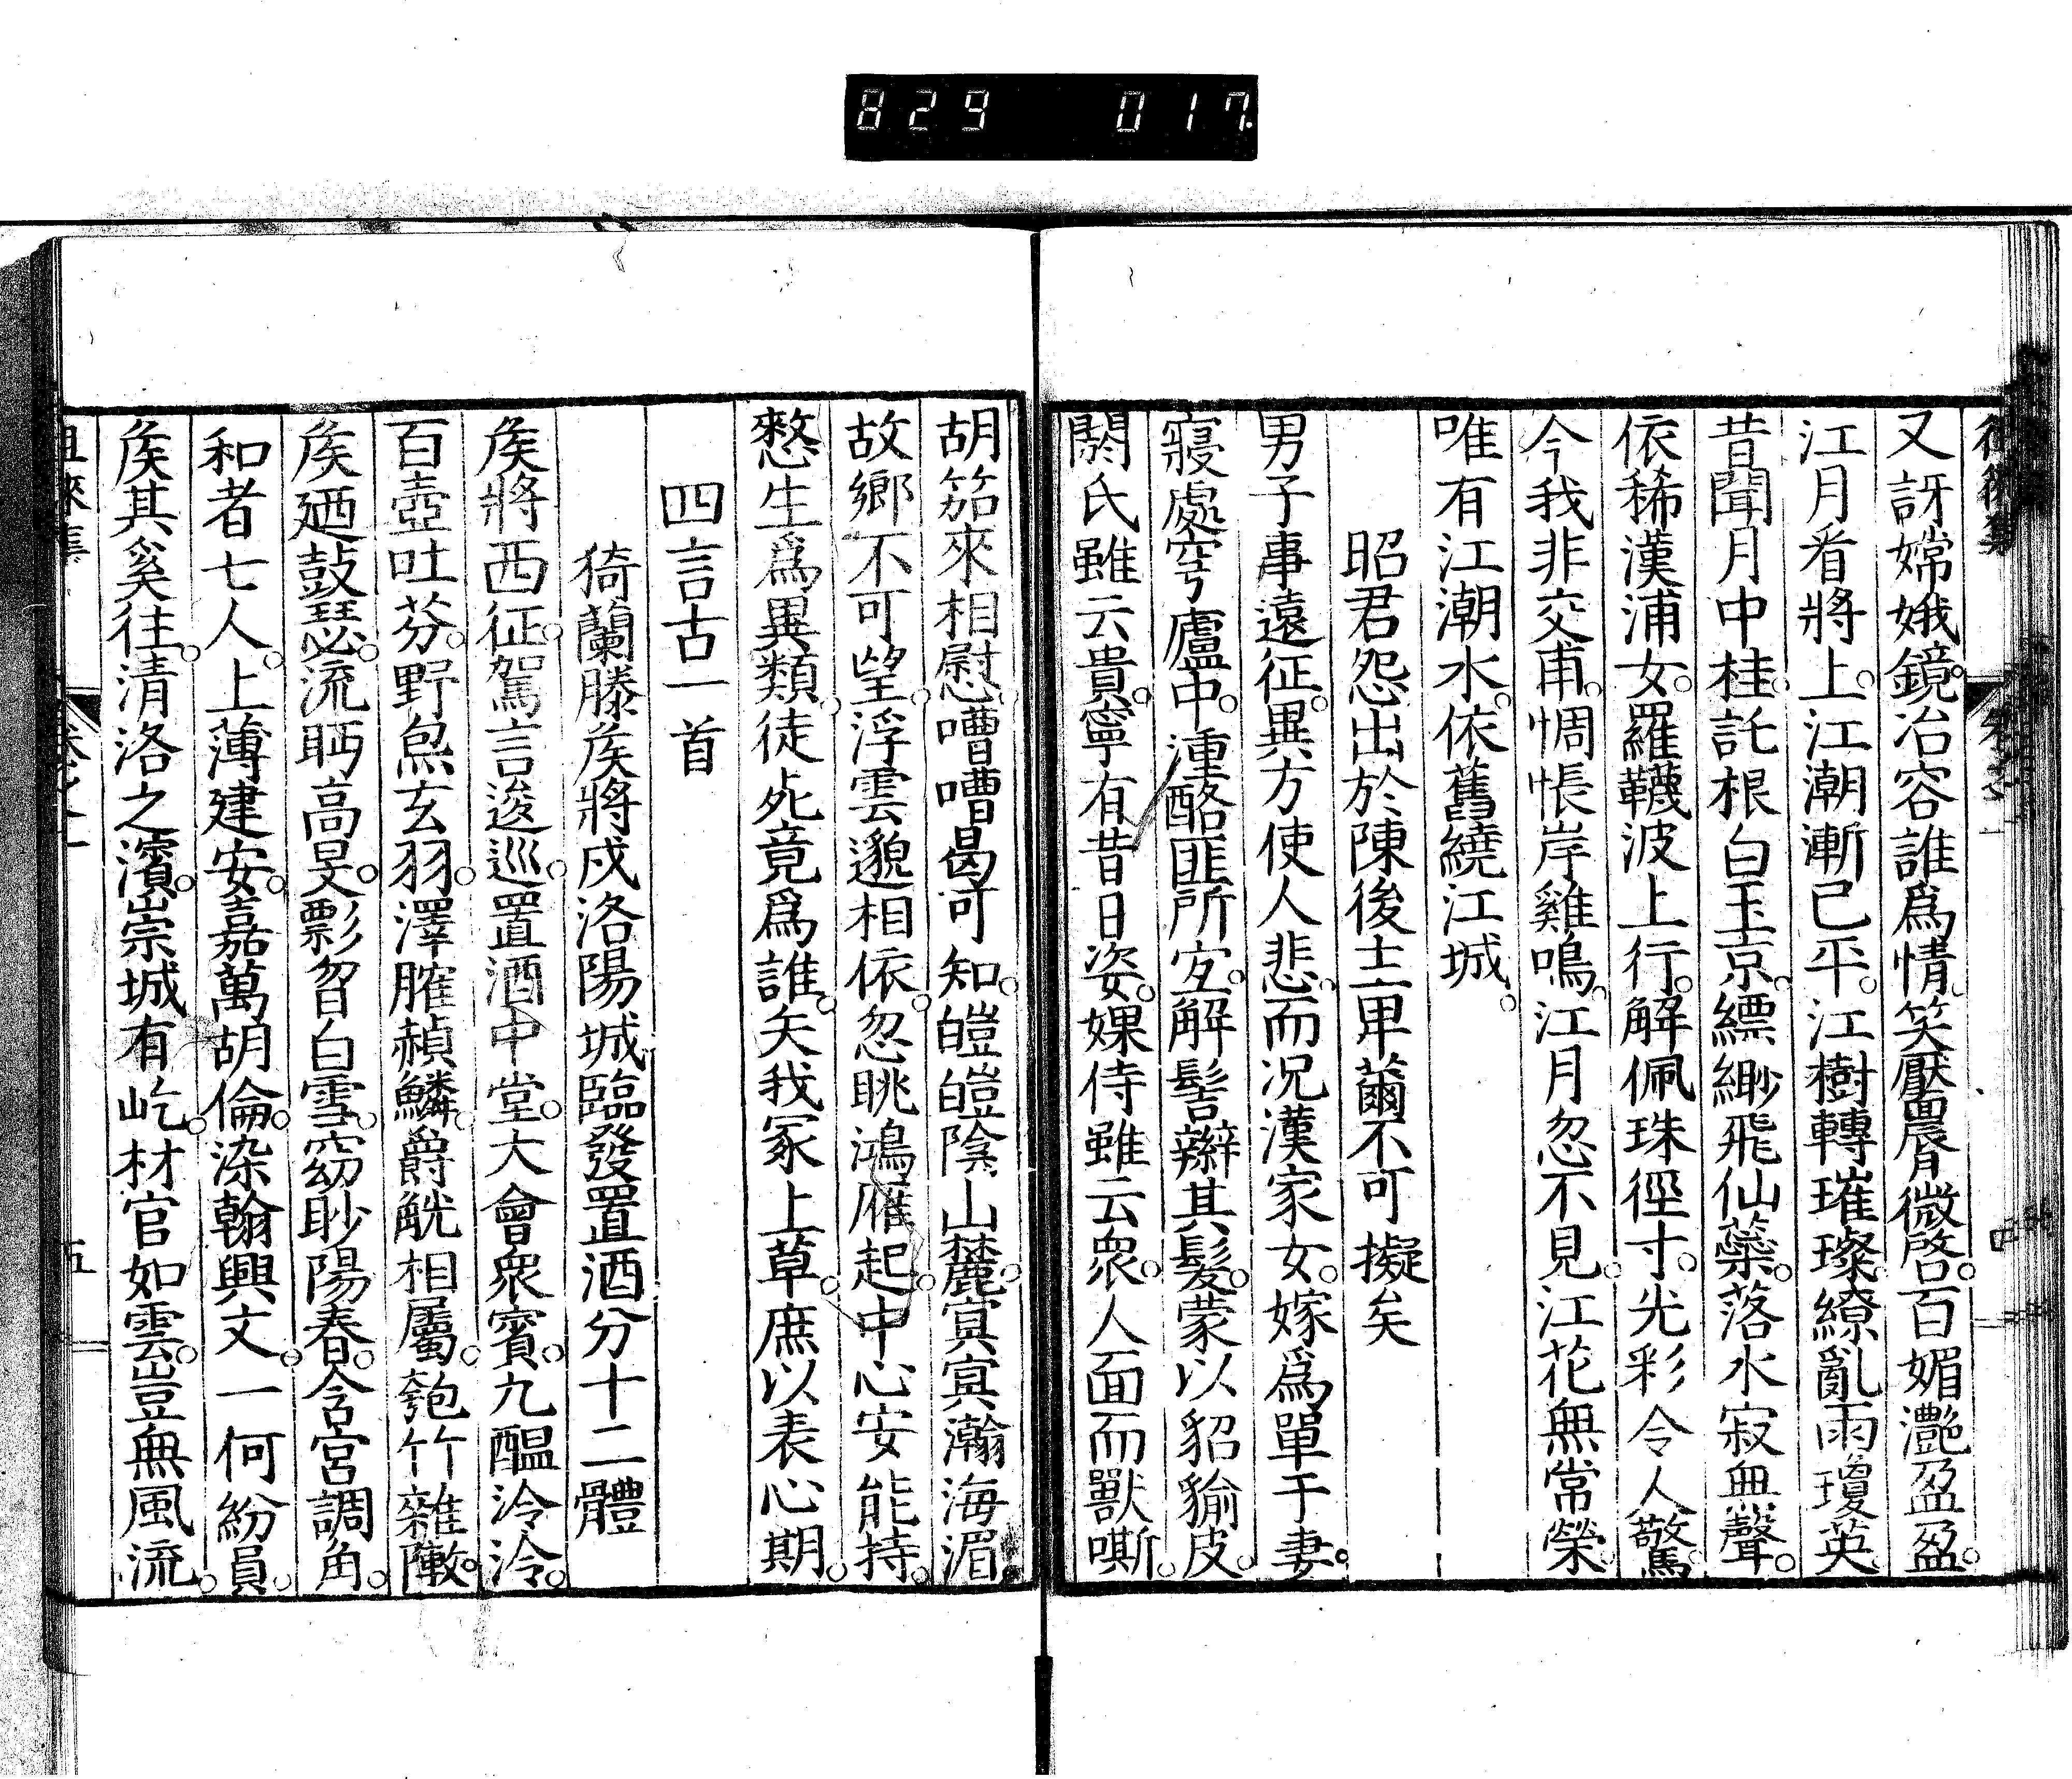 829 017
又訝嫦娥鏡。冶容誰爲情。笑靨唇微啓。百媚灩盈盈。
江月看將上。江潮漸已平。江樹轉璀璨。繚亂雨瓊英。
昔聞月中桂。託根白玉京。縹緲飛仙藥。落水寂無聲。
依稀漢浦女。羅韈波上行。解佩珠徑寸。光彩令人驚。
今我非交甫。惆悵岸雞鳴。江月忽不見。江花無常榮。
唯有江潮水。依舊繞江城。
昭君怨出於陳後主卑薾不可擬矣
男子事遠征。異方使人悲。而況漢家女。嫁爲單于妻。
寢處穹廬中。湩酪匪所宐。解髻辮其髮。蒙以貂貐皮。
閼氏雖云貴。寧有昔日姿。婐侍雖云衆。人面而獸嘶。
胡笳來相慰。嘈嘈曷可知。皚皚陰山麓。寘寘瀚海湄。
故鄉不可望。浮雲邈相依。忽眺鴻雁起。中心安能持。
憖生爲異類。徒死竟爲誰。矢我冢上草。庶以表心期。
四言古一首
猗蘭滕矦將戍洛陽城臨發置酒分十二體
矦將西征。駕言逡巡。置酒中堂。大會衆賓。九醞泠泠。
百壺吐芬。野炰玄羽。澤脽赬鱗。爵觥相屬。匏竹雜陳。
矦廼鼓瑟。流眄高旻。飄曶白雪。窈眇陽春。含宮調角。
和者七人。上薄建安。嘉萬胡倫。染翰興文。一何紛員。
矦其奚往。清洛之濱。崇城有屹。材官如雲。豈無風流。
五